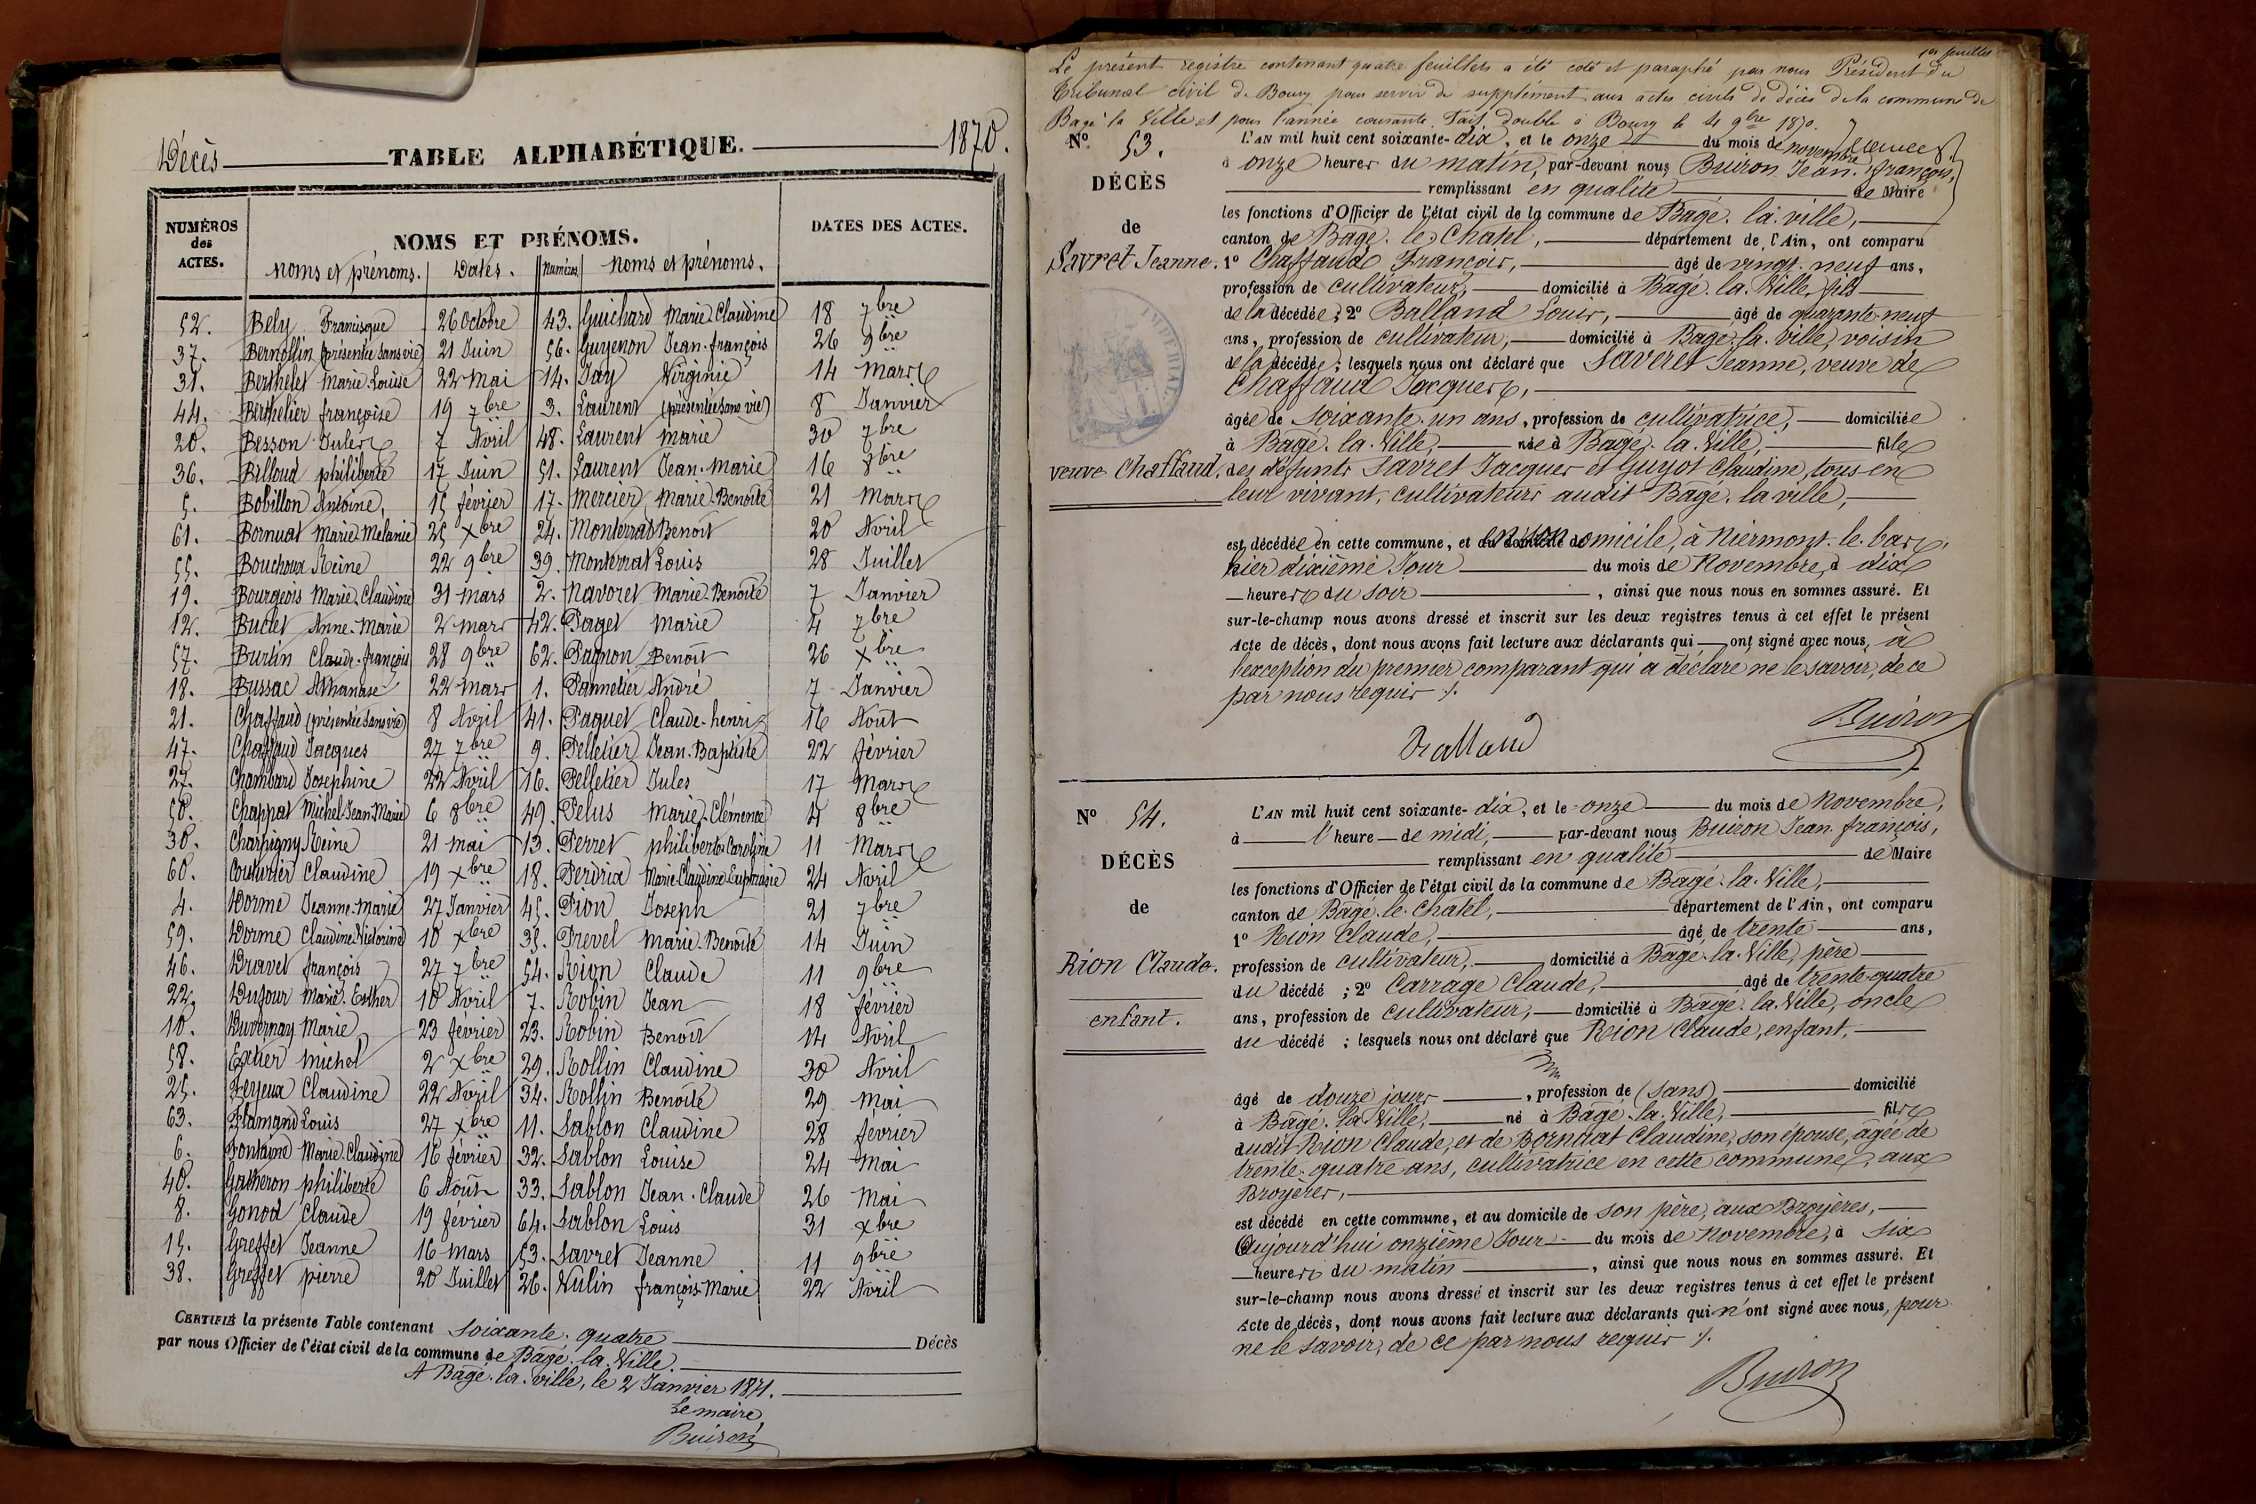 Décès TABLE ALPHABÉTIQUE. 1870.
NUMÉROS des ACTES. NOMS ET PRÉNOMS. DATES DES ACTES.
noms et prénoms. Dates. Numéros noms et prénoms.
52. Bely Francisque 26 Octobre 43. Guichard Marie-Claudine 18 7bre
37. Bernollin (présentée sans vie) 21 Juin 56. Guyenon Jean-françois 26 9bre
31. Berthelet Marie-Louise 22 Mai 14. Jay Virginie 14 Mars
44. Berthelier françoise 19 7bre 3. Laurent (présentée sans vie) 8 Janvier
20. Besson Jules 7 Avril 48. Laurent Marie 30 7bre
36. Billoud philiberte 17 Juin 51. Laurent Jean-Marie 16 8bre
5. Bobillon Antoine, 15 février 17. Mercier Marie-Benoîte 21 Mars
61. Bornuat Marie-Mélanie 25 xbre 24. Monterrat Benoît 20 Avril
55. Bouchoux Reine 22 9bre 39. Monterrat Louis 28 Juillet
19. Bourgeois Marie-Claudine 31 Mars 2. Navoret Marie-Benoîte 7 Janvier
12. Buclet Anne-Marie 2 mars 42. Paget Marie 4 7bre
57. Burtin Claude-françois 28 9bre 62. Pagnon Benoît 26 xbre
18. Bussac Athanase 22 Mars 1. Pannetier André 7 Janvier
21. Chaffaud (présentée sans vie) 8 Avril 41. Paquet Claude-henri 16 Août
47. Chaffaud Jacques 27 7bre 9. Pelletier Jean-Baptiste 22 février
27. Chambard Joséphine 22 Avril 16. Pelletier Jules 17 Mars
50. Chappat Michel-Jean-Marie 6 8bre 49. Pelus Marie-Clémence 4 8bre
30. Charpigny Reine 21 mai 13. Perret philiberte-Caroline 11 Mars
60. Couturier Claudine 19 xbre 18. Perdrix Marie-Claudine-Euphrasie 24 Avril
4. Dorme Jeanne-Marie 27 Janvier 45. Pion Joseph 21 7bre
59. Dorme Claudine-Victorine 10 xbre 35. Prevel Marie-Benoîte 14 Juin
46. Dravet françois 27 7bre 54. Rion Claude 11 9bre
22. Dufour Marie-Esther 10 Avril 7. Robin Jean 18 février
10. Duvernay Marie 23 février 23. Robin Benoît 14 Avril
58. Extier Michel 2 xbre 29. Rollin Claudine 30 Avril
25. Feyeux Claudine 22 Avril 34. Rollin Benoîte 29 Mai
63. Flamand Louis 27 xbre 11. Sablon Claudine 28 février
6. Fontaine Marie-Claudine 16 février 32. Sablon Louise 24 Mai
40. Gatheron philiberte 6 Août 33. Sablon Jean-Claude 26 Mai
8. Gonod Claude 19 février 64. Sablon Louis 31 xbre
15. Greffet Jeanne 16 Mars 53. Savret Jeanne 11 9bre
38. Greffet pierre 20 Juillet 26. Vulin françois-Marie 22 Avril
CERTIFIÉ la présente Table contenant soixante-quatre Décès
par nous Officier de l'état civil de la commune de Bâgé-la-Ville.
A Bâgé-la-ville, le 2 Janvier 1871.
Le maire
Buiron
1er feuillet
Le présent registre contenant quatre feuillets a été coté et paraphé par nous Président du
Tribunal civil de Bourg pour servir de supplément aux actes civils de décès de la commune de
Bagé la Ville et pour l'année courante. Fait double à Bourg le 4 9bre 1870.
N° 53.
DÉCÈS
de
Savret Jeanne.
veuve Chaffaud.
L'AN mil huit cent soixante-dix, et le onze du mois de novembre
à onze heures du matin, par-devant nous Buiron Jean-françois,
remplissant en qualité de Maire
les fonctions d'Officier de l'état civil de la commune de Bâgé-la-ville,
canton de Bâgé-le-Chatel, département de l'Ain, ont comparu
1° Chaffaud François, âgé de vingt-neuf ans,
profession de cultivateur, domicilié à Bâgé-la-Ville, fils
de la décédée ; 2° Balland Louis, âgé de quarante-neuf
ans, profession de cultivateur, domicilié à Bâgé-la-ville, voisin
de la décédée ; lesquels nous ont déclaré que Saveret Jeanne, veuve de
Chaffaud Jacques,
âgée de soixante-un ans, profession de cultivatrice, domiciliée
à Bâgé-la-Ville, née à Bâgé-la-Ville, fille
des défunts Savret Jacques et Guyot Claudine, tous en
leur vivant, cultivateurs audit Bâgé-la-ville,
est décédée en cette commune, et en son domicile, à Niermont-le-bas,
hier dixième Jour du mois de Novembre, à dix
heures du soir, ainsi que nous nous en sommes assuré. Et
sur-le-champ nous avons dressé et inscrit sur les deux registres tenus à cet effet le présent
Acte de décès, dont nous avons fait lecture aux déclarants qui ont signé avec nous, à
l'exception du premier comparant qui a déclaré ne le savoir, de ce
par nous requis ./.
Balland
Buiron
N° 54.
DÉCÈS
de
Rion Claude.
enfant.
L'AN mil huit cent soixante-dix, et le onze du mois de Novembre,
à l'heure de midi, par-devant nous Buiron Jean-françois,
remplissant en qualité de Maire
les fonctions d'Officier de l'état civil de la commune de Bâgé-la-Ville,
canton de Bâgé-le-Chatel, département de l'Ain, ont comparu
1° Rion Claude, âgé de trente ans,
profession de cultivateur, domicilié à Bâgé-la-Ville, père
du décédé ; 2° Carrage Claude, âgé de trente-quatre
ans, profession de cultivateur, domicilié à Bâgé-la-Ville, oncle
du décédé ; lesquels nous ont déclaré que Rion Claude, enfant,
âgé de douze jours, profession de (sans) domicilié
à Bâgé-la-Ville, né à Bâgé-la-Ville, fils
dudit Rion Claude, et de Bornuat Claudine, son épouse, âgée de
trente-quatre ans, cultivatrice en cette commune, aux
Broyères,
est décédé en cette commune, et au domicile de son père, aux Broyères,
Aujourd'hui onzième Jour du mois de Novembre, à six
heures du matin, ainsi que nous nous en sommes assuré. Et
sur-le-champ nous avons dressé et inscrit sur les deux registres tenus à cet effet le présent
Acte de décès, dont nous avons fait lecture aux déclarants qui n'ont signé avec nous, pour
ne le savoir, de ce par nous requis ./.
Buiron